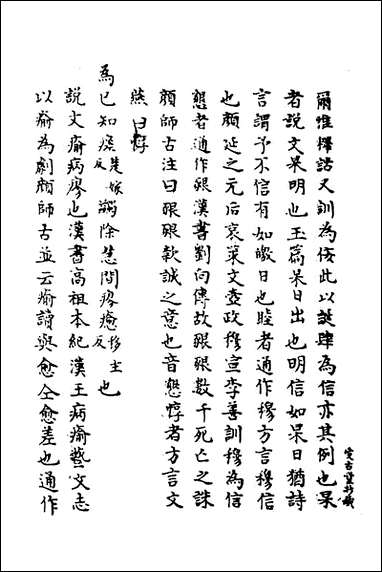 爾惟擇詁又訓為佞此以誕肆為信亦其例也杲
者説文杲明也玉篇杲日出也明信如杲日猶詩
言謂予不信有如皦日也睦者通作穆方言穆信
也顔延之元后哀策文壼政穆宣李善訓穆為信
懇者通作豤漢書劉向傳故豤豤數千死亡之誅
顔師古注曰豤豤款誠之意也音懇惇者方言文
燕曰惇
為已知瘥楚嫁反蠲除慧間瘳瘉移主反也
説文瘉病瘳也漢書高祖本紀漢王病瘉藝文志
以瘉為劇顔師古並云瘉讀與愈仝愈差也通作